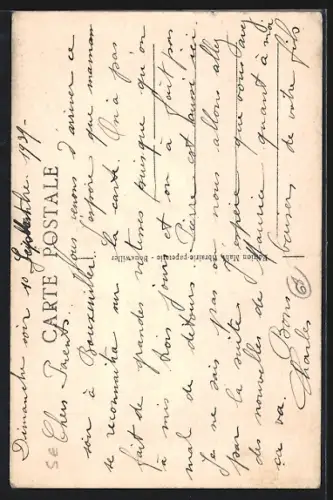 CARTE POSTALE
Dimanche soir 10
Chers Parents. Nous venons d'arriver ce
soir à Bouxwiller. J'espère que maman
se reconnaitra sur la carte. On a pas
fait de grandes routines puisque qu'on
a mis trois jours et on a fait pas
mal de détours. Pierre est aussi ici.
Je ne sais pas où nous allons aller
par la suite. J'espère que vous avez
des nouvelles de Maurice quant à moi
ça va. Bons baisers de votre fils
Charles
librairie-papeterie Bouxwiller